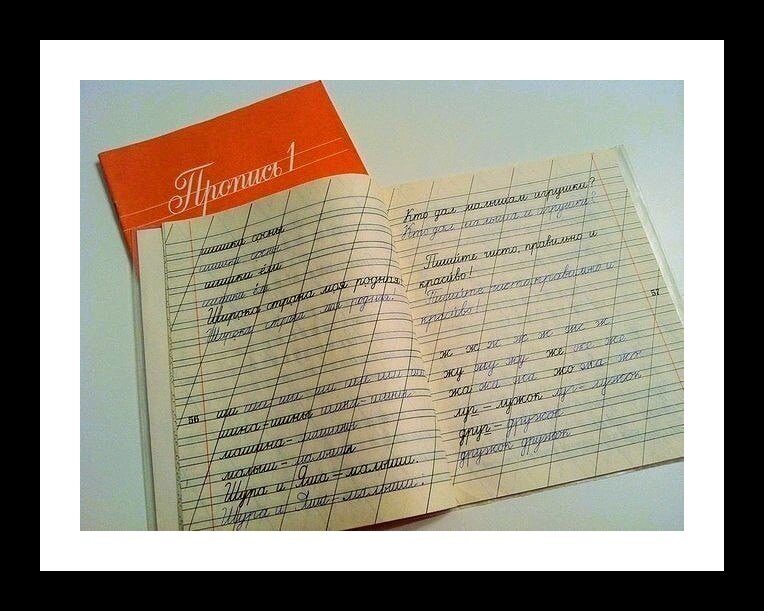 Пропись 1
шишка сосны
шишка сосны
шишки ели
шишки ели
Широка страна моя родная!
Широка страна моя родная!
56
ши ша ша ши ши ши ши
шина – шины шина – шины
машина –
малыш – малыши
Шура и Яша – малыши.
Шура и Яша – малыши.
Кто дал малышам игрушки?
Кто дал малышам игрушки?
Пишите чисто, правильно и
красиво!
Пишите чисто, правильно и
красиво!
57
ж ж ж ж ж ж ж
жу жу жу же же же
жа жа жа жо жо жо
луг – лужок луг – лужок
друг – дружок
дружок дружок